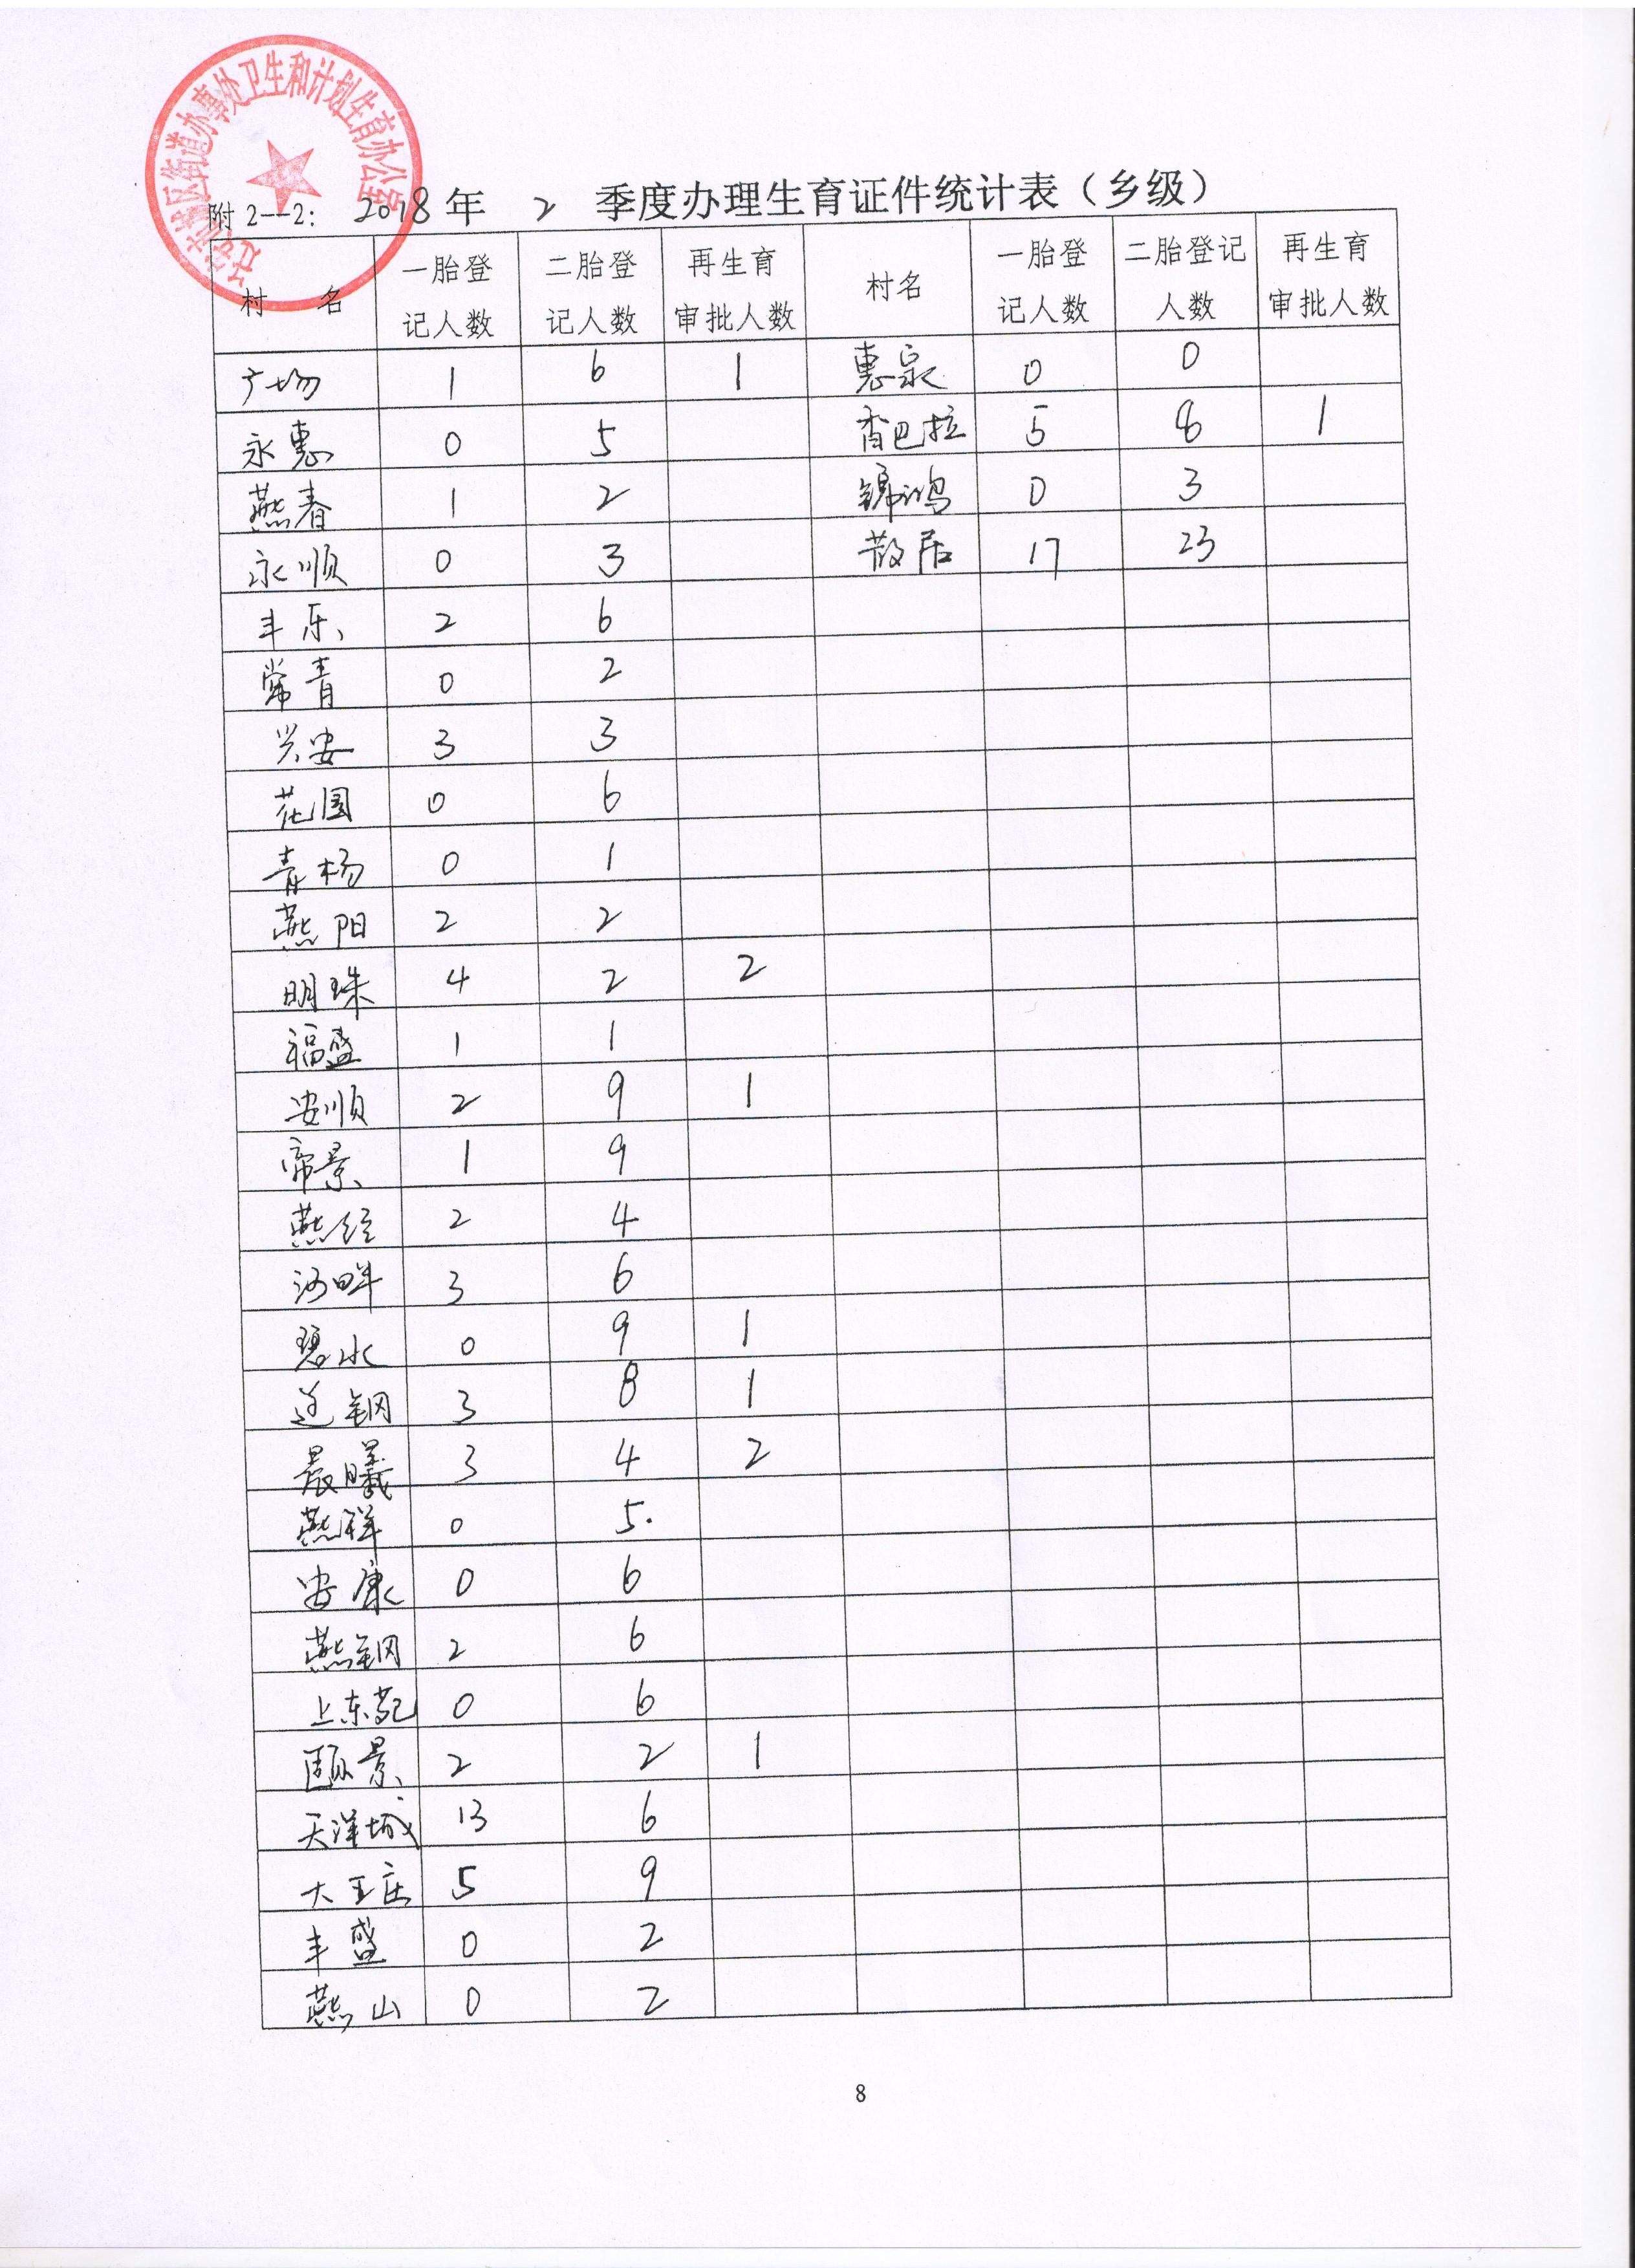 迁安市城区街道办事处卫生和计划生育办公室
附2--2: 2018年 2 季度办理生育证件统计表（乡级）
村 名 一胎登记人数 二胎登记人数 再生育审批人数 村名 一胎登记人数 二胎登记人数 再生育审批人数
广场 1 6 1 惠泉 0 0
永惠 0 5 香巴拉 5 6 1
燕春 1 2 锦鸿 0 3
永顺 0 3 散居 17 23
丰乐 2 6
常青 0 2
兴安 3 3
花园 0 6
青杨 0 1
燕阳 2 2
明珠 4 2 2
福盛 1 1
安顺 2 9 1
帝景 1 9
燕经 2 4
河畔 3 6
碧水 0 9 1
连钢 3 8 1
晨曦 3 4 2
燕祥 0 5.
安康 0 6
燕钢 2 6
上东苑 0 6
颐景 2 2 1
天洋城 13 6
大王庄 5 9
丰盛 0 2
燕山 0 2
8